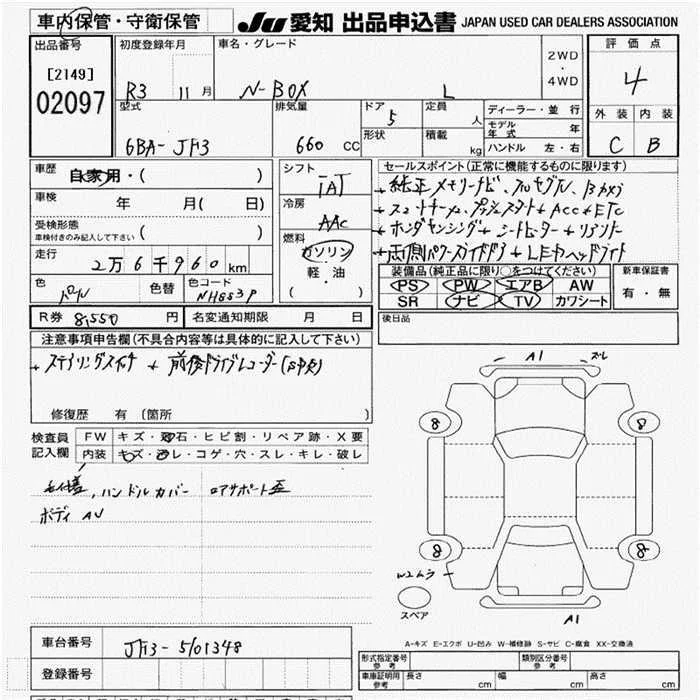 車内保管・守衛保管
JU 愛知 出品申込書 JAPAN USED CAR DEALERS ASSOCIATION
出品番号 初度登録年月 車名・グレード 評価点
[2149] 2WD
・
R3 11月 N-BOX L 4WD 4
02097
型式 排気量 ドア 5 定員 人 ディーラー・並行 外装 内装
モデル年式 年
6BA-JF3 660 CC 形状 積載 kg ハンドル 左・右 C B
車歴 自家用・( )
車検 年 月( 日)
受検形態
車検付きのみ記入して下さい ( )
走行 2万6千960km
色 パール 色替 色コード NH883P
シフト IAT
冷房 AAC
燃料 ガソリン
軽・油
( )
セールスポイント(正常に機能するものに限ります)
+純正メモリーナビ、フルセグTV、Bカメラ
+スマートキー、プッシュスタート+ACC+ETC
+ホンダセンシング+シートヒーター+リアソナー
+両側パワースライドドア+LEDヘッドライト
装備品(純正品に限り○をつけてください) 新車保証書
PS PW エアB AW 有・無
SR ナビ TV カワシート
R券 8,550 円 名変通知期限 月 日
後日品
注意事項申告欄(不具合内容等は具体的に記入して下さい)
+ステアリングスイッチ +前後ドライブレコーダー
修復歴 有 (箇所 )
検査員記入欄 FW キズ・飛石・ヒビ割・リペア跡・X要
内装 キズ・汚レ・コゲ・穴・スレ・キレ・破レ
ハンドルカバー ロアサポート
ボディ AU
A1 スレ
8 8
8 8
W2ムラ
スペア
A1
A-キズ E-エクボ U-凹み W-補修跡 S-サビ C-腐食 XX-交換済
車台番号 JF3-5101348
登録番号
形式指定番号 参考 類別区分番号 参考
車庫証明用 参考 長さ cm 幅 cm 高さ cm